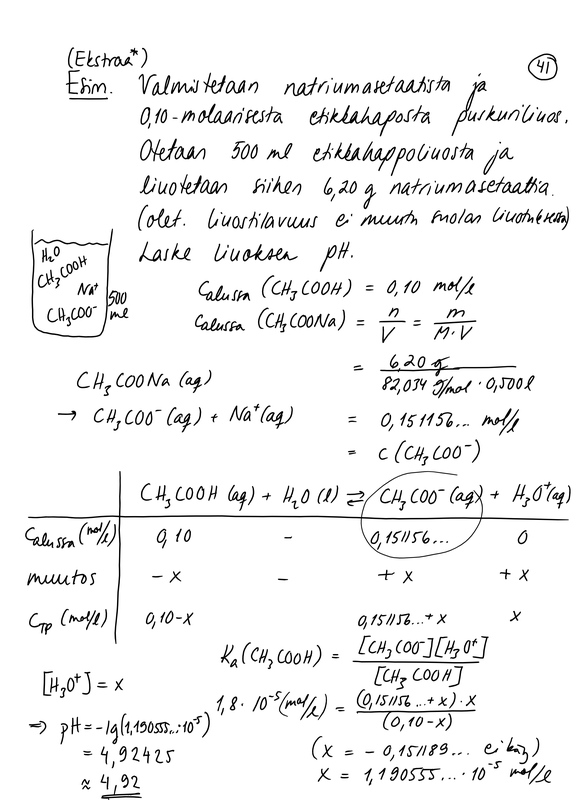 (Ekstraa*)
41
Esim. Valmistetaan natriumasetaatista ja
0,10-molaarisesta etikkahaposta puskuriliuos.
Otetaan 500 ml etikkahappoliuosta ja
liuotetaan siihen 6,20 g natriumasetaattia.
(olet. liuostilavuus ei muutu suolan liuotuksessa)
Laske liuoksen pH.
H₂O
CH₃COOH
Na⁺
CH₃COO⁻
500 ml
Calussa (CH₃COOH) = 0,10 mol/l
Calussa (CH₃COONa) = n/V = m/(M·V)
= 6,20 g / (82,034 g/mol · 0,500 l)
CH₃COONa (aq)
→ CH₃COO⁻ (aq) + Na⁺(aq)
= 0,151156... mol/l
= c(CH₃COO⁻)
CH₃COOH (aq) + H₂O (l) ⇌ CH₃COO⁻ (aq) + H₃O⁺(aq)
Calussa (mol/l) 0,10 – 0,151156... 0
muutos – x – + x + x
CTP (mol/l) 0,10-x 0,151156...+x x
Ka (CH₃COOH) = [CH₃COO⁻][H₃O⁺] / [CH₃COOH]
[H₃O⁺] = x
1,8·10⁻⁵ (mol/l) = (0,151156...+x)·x / (0,10-x)
⇒ pH = -lg(1,190555...·10⁻⁵)
= 4,92425
≈ 4,92
(x = -0,151189... ei käy)
x = 1,190555...·10⁻⁵ mol/l